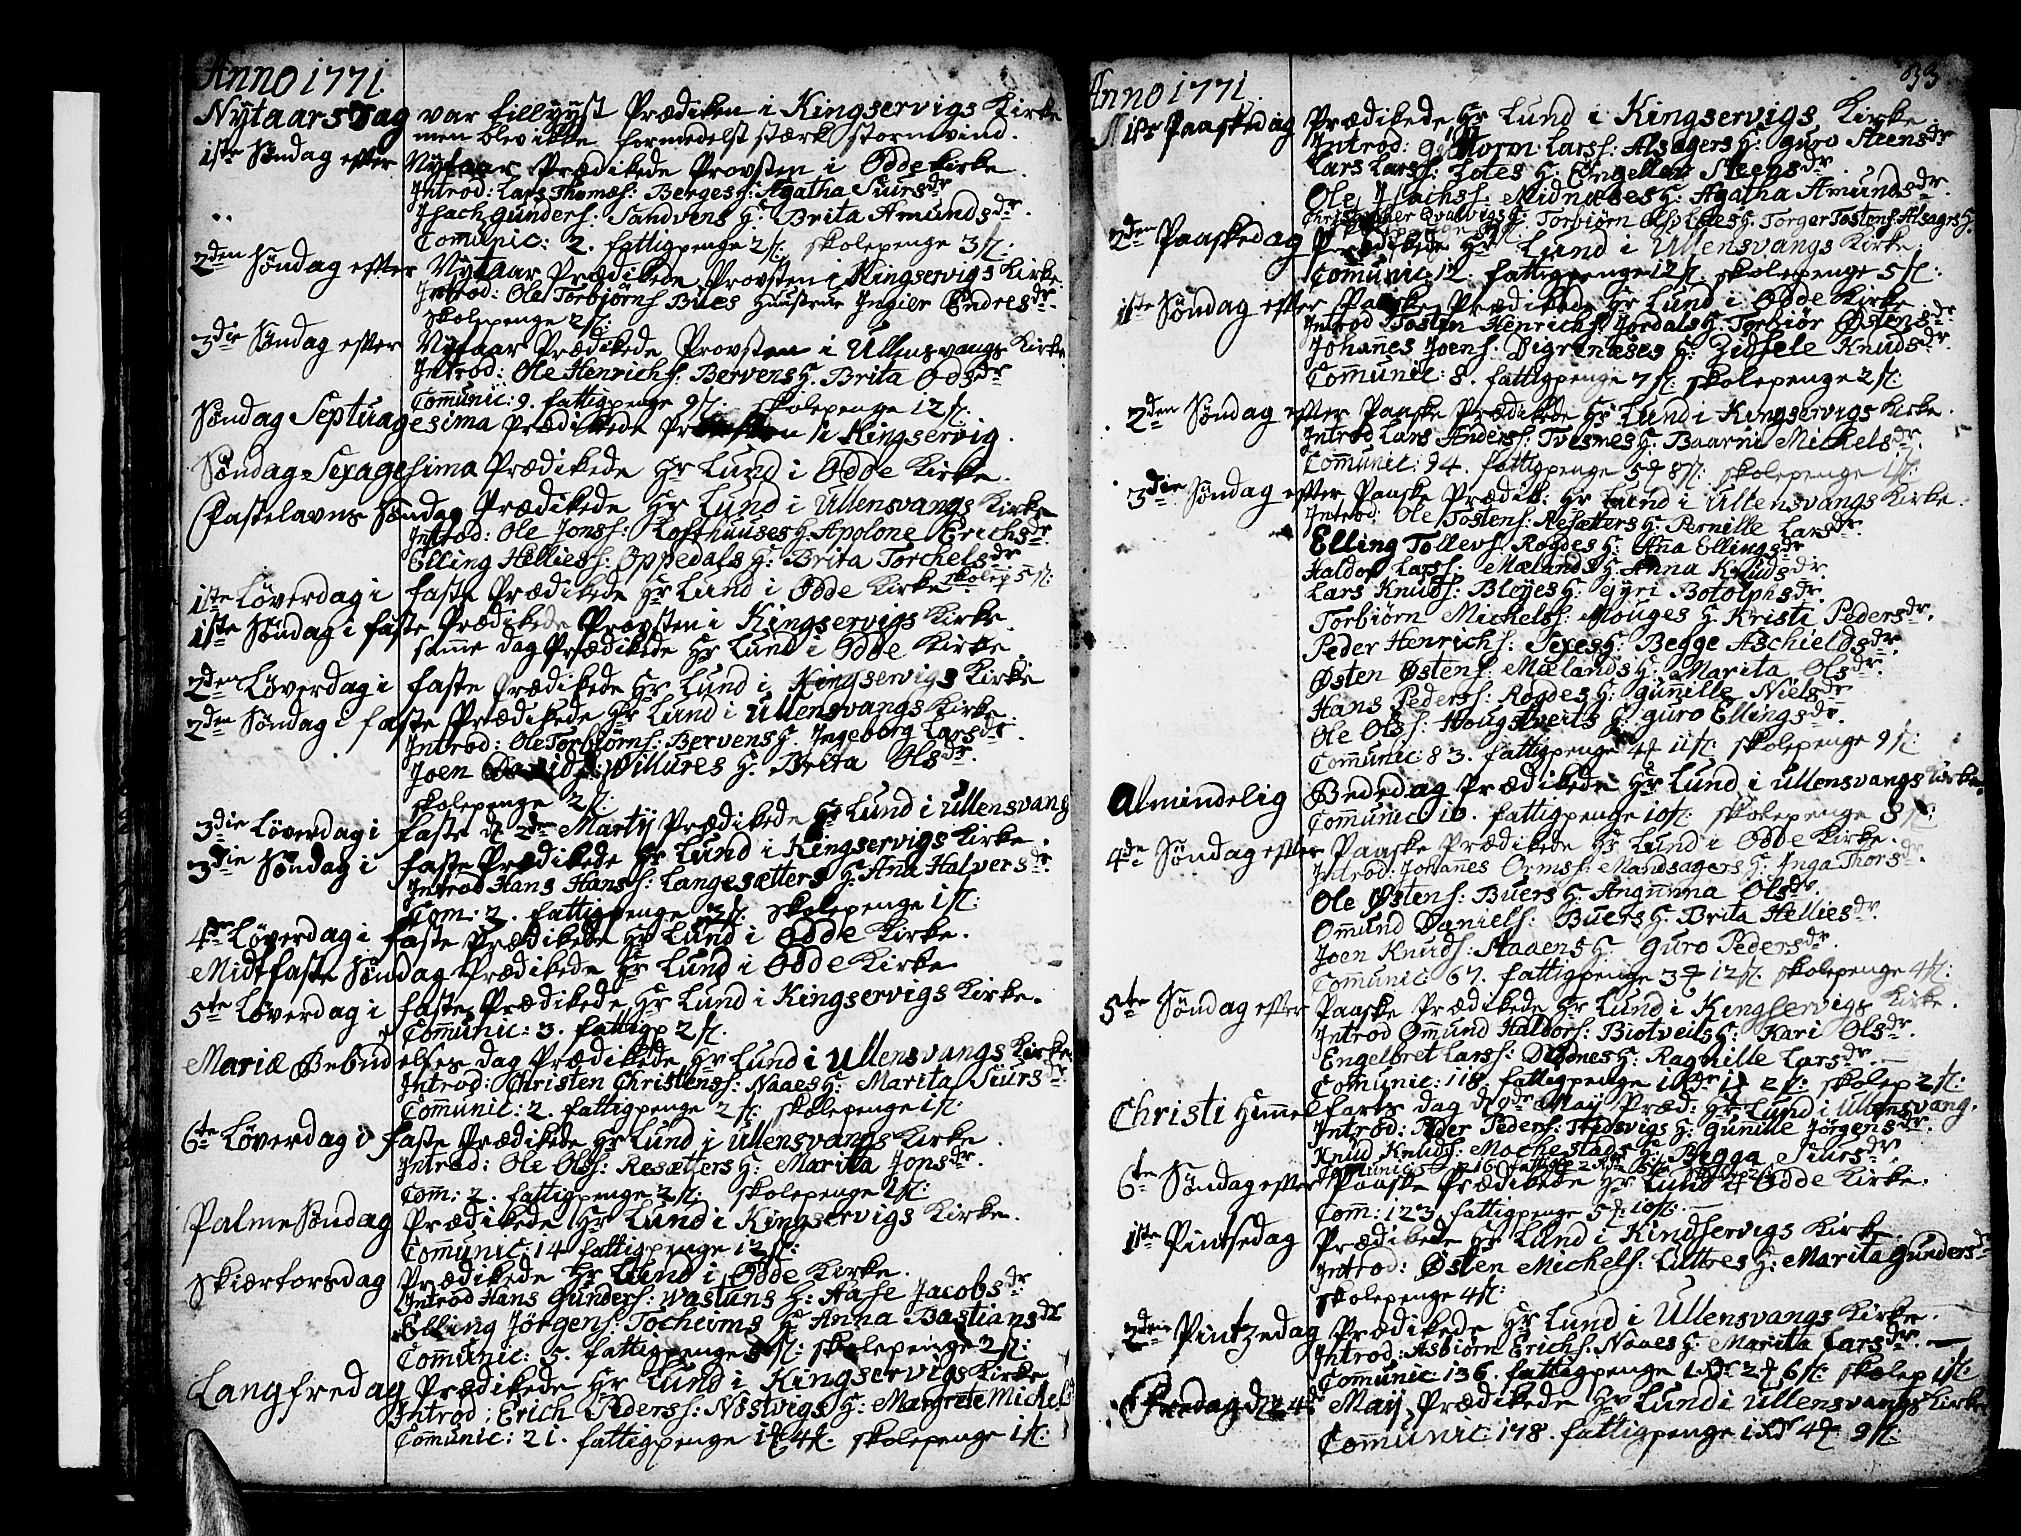 Anno 1771.
NytaarsDag var tillyyst Prædiken i Kingservigs Kirke
men blev ikke formedelst stærk stormvind.
1ste Søndag efter Nytaar Prædikede Provsten i Odde Kirke.
Introd: Lars Thomæs: Berges H: Agatha Siursdr
Isach Gunders: Sandvens H: Brita Amundsdr.
Comunic: 2. fattigpenge 2 sk: skolepenge 3 sk.
2den Søndag efter Nytaar Prædikede Provsten i Kingservigs Kirke
Introd: Ole Torbiörns Bues Huustrue Ingier Endresdr
Skolepenge 2 sk:
3die Søndag efter Nytaar Prædikede Provsten i Ullensvangs Kirke
Introd: Ole Henrichs: Bervens H. Brita Odsdr
Comunic: 9. fattigpenge 9 sk: skolepenge 12 sk.
Søndag Septuagesima Prædikede Provsten i Kingservig.
Søndag Sexagesima Prædikede Hr Lund i Odde Kirke.
Fastelavns Søndag Prædikede Hr Lund i Ullensvangs Kirke
Introd: Ole Jonss: Lofthuuses H: Apolone Erichsdr.
Elling Hellies: Oppedals H: Brita Torchelsdr
1ste Løverdag i faste Prædikede Hr Lund i Odde Kirke skolep 5 sk:
1ste Søndag i faste Prædikede Provsten i Kingservigs Kirke.
samme dag Prædikede Hr Lund i Odde Kirke.
2den Løverdag i faste Prædikede Hr Lund i Kingservigs Kirke
2den Søndag i faste Prædikede Hr Lund i Ullensvangs Kirke.
Introd: Ole Torbiörns: Bervens H. Ingeborg Larsdr.
Joen Willures H: Brita Olsdr.
skolepenge 2 sk:
3die Løverdag i faste d 2dn Martij Prædikede Hr Lund i Ullensvang
3die Søndag i faste Prædikede Hr Lund i Kingservigs Kirke.
Introd Hans Hanss: Langesætters H: Ana Halversdr.
Com: 2. fattigpenge 2 sk: skolepenge 1 sk:
4de Løverdag i faste Prædikede Hr Lund i Odde Kirke.
Midtfaste Søndag Prædikede Hr Lund i Odde Kirke
5te Løverdag i faste Prædikede Hr Lund i Kingservigs Kirke.
Comunic: 3. fattigp 2 sk.
Mariæ Bebudelses dag Prædikede Hr Lund i Ullensvangs Kirke
Introd: Christen Christenss: Naaes H: Marita Siursdr.
Comunic: 2. fattigpenge 2 sk: skolepenge 1 sk:
6te Løverdag i faste Prædikede Hr Lund i Ullensvangs Kirke.
Introd: Ole Olss: Resætters H: Marita Jonsdr.
Com: 2. fattigpenge 2 sk: skolepenge 1 sk:
Palme Søndag Prædikede Hr Lund i Kingservigs Kirke.
Comunic: 14 fattigpenge 12 sk:
Skiærtorsdag Prædikede Hr Lund i Odde Kirke.
Introd Hans Gunders: Vastuns H: Aase Jacobsdr
Elling Jörgens Tocheims H: Anna Bastiansdr
Comunic: 5. fattigpenge sk: skolepenge 2 sk:
Langfredag Prædikede Hr Lund i Kingservigs Kirke
Introd: Erich Pederss: Nöstvigs H: Margrete Michels
Comunic: 21. fattigpenge 1 4 sk. skolepenge 1 sk:
33
Anno 1771.
1ste Paaskedag Prædikede Hr Lund i Kingservigs Kirke.
Introd: Guttorm Larss: Alsagers H: Guro Steensdr
Lars Larss: Lotes H: Engeller Steensdr.
Ole Isachs: Midnæses H: Agatha Amundsdr.
Christopher Qvalvigs H: Torbiörn Ols Lotes H: Torger Tostens Alsagers H.
2den Paaskedag Prædikede Hr Lund i Ullensvangs Kirke.
Comunic 12. fattigpenge 12 sk: skolepenge 5 sk:
1ste Søndag efter Paaske Prædikede Hr Lund i Odde Kirke.
Introd Tosten Henrichs: Jordals H: Torbiør Østensdr
Johannes Joens: Digrenæses H: Zidsele Knudsdr.
Comunic: 8. fattigpenge 7 sk: skolepenge 2 sk:
2den Søndag efter Paaske Prædikede Hr Lund i Kingservigs Kirke.
Introd Lars Anders: Tvesmes H: Baarni Michelsdr.
Comunic: 94. fattigpenge 5 8 sk: skolepenge 1 sk:
3die Søndag efter Paaske Prædik: Hr Lund i Ullensvangs Kirke.
Introd: Ole Tostens: Resætters H: Pernille Larsdr.
Elling Tollevs: Rogdes H: Ana Ellingsdr
Haldor Larss: Mælands H: Anna Knudsdr.
Lars Knuds: Bleyes H: Gyri Botolphsdr.
Torbiørn Michels: Mouges H: Kristi Pedersdr.
Peder Henrichs: Sexes H: Begge Aschieldsdr.
Østen Østens: Mælands H: Marita Olsdr.
Hans Pederss: Rogdes H: Gunille Nielsdr
Ole Olss: Hougstveits H: Guro Ellingsdr.
Comunic 83. fattigpenge 4 11 sk: skolepenge 9 sk:
Almindelig Bededag Prædikede Hr Lund i Ullensvangs Kirke.
Comunic 10. fattigpenge 10 sk: skolepenge 3 sk:
4de Søndag efter Paaske Prædikede Hr Lund i Odde Kirke.
Introd: Johannes Orms: Mandsagers H: Inga Thorsdr.
Ole Østens: Buers H: Angunna Olsdr.
Omund Daniels: Buers H: Brita Helliesdr.
Joen Knuds: Aaaens H: Guro Pedersdr.
Comunic 67. fattigpenge 3 12 sk: skolepenge 4 sk:
5te Søndag efter Paaske Prædikede Hr Lund i Kingservigs Kirke.
Introd Omund Haldors: Biotveits H: Kari Olsdr.
Engelbret Larss: Djønes H: Ragnille Larsdr.
Comunic: 118. fattigpenge 1 2 sk: skolep 2 sk:
Christi Himmelfarts dag d 9de Maij Præd: Hr Lund i Ullensvang.
Introd: Peder Peders: Hedsvigs H: Gunille Jörgensdr.
Knud Knuds: Mochestads H: Begga Siursdr.
6te Søndag efter Paaske Prædikede Hr Lund i Odde Kirke.
Com: 123. fattigpenge 5 10 sk:
1ste Pintsedag Prædikede Hr Lund i Kindservigs Kirke.
Introd: Østen Michels: Luttres H: Marita Gundersdr
skolepenge 4 sk:
2den Pintzedag Prædikede Hr Lund i Ullensvangs Kirke.
Introd: Asbiørn Erichs: Naaes H: Marita Larsdr.
Comunic 136. fattigpenge 1 2 6 sk: skolep 1 sk:
Fredag d 24 Maij Prædikede Hr Lund i Ullensvangs Kirke
Comunic 178. fattigpenge 1 4 9 sk: